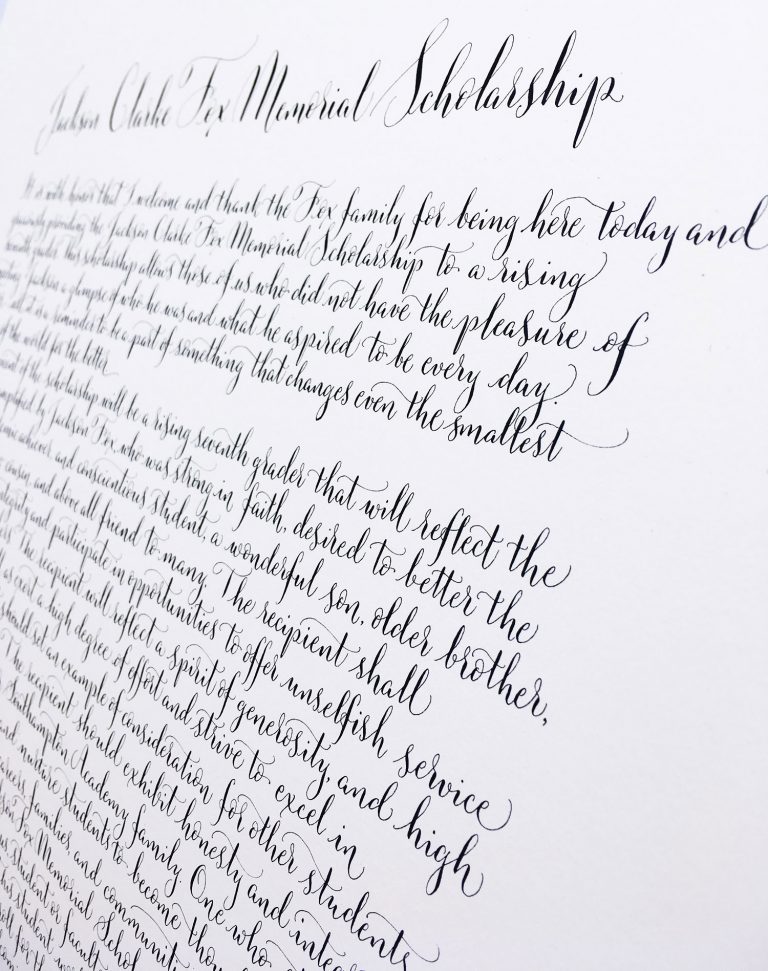 Jackson Clarke Fox Memorial Scholarship
It is with honor that I welcome and thank the Fox family for being here today and
graciously providing the Jackson Clarke Fox Memorial Scholarship to a rising
seventh grader. This scholarship allows those of us who did not have the pleasure of
Jackson a glimpse of who he was and what he aspired to be every day.
all, it is a reminder to be a part of something that changes even the smallest
of the world for the better.
of the scholarship will be a rising seventh grader that will reflect the
by Jackson Fox, who was strong in faith, desired to better the
achiever and conscientious student, a wonderful son, older brother,
cousin, and above all friend to many. The recipient shall
integrity and participate in opportunities to offer unselfish service
The recipient will reflect a spirit of generosity, and high
as exert a high degree of effort and strive to excel in
should set an example of consideration for other students
The recipient should exhibit honesty and
Southampton Academy family. One who
and nurture students to become
careers, families, and
Fox Memorial
student or
student
for the